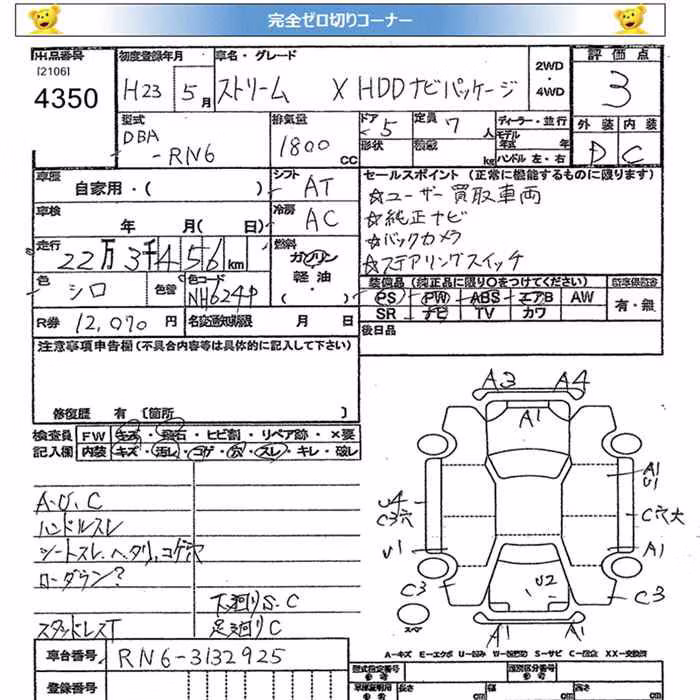 完全ゼロ切りコーナー
出品番号 初度登録年月 車名・グレード 2WD・4WD 評価点
[2106]
4350 H23 5月 ストリーム X HDDナビパッケージ 3
型式 排気量 ドア 5 定員 7人 ディーラー・並行 外装 内装
DBA-RN6 1800cc 形状 積載 kg モデル年式 年 ハンドル 左・右 D C
車歴 自家用・( ) シフト AT セールスポイント (正常に機能するものに限ります)
☆ユーザー買取車両
車検 年 月( 日) 冷房 AC ☆純正ナビ
☆バックカメラ
走行 22万3千456km 燃料 ガソリン・軽油・( ) ☆ステアリングスイッチ
色 シロ 色替 色コード NH624P 装備品 (純正品に限り○をつけてください)
PS PW ABS エアB AW 有・無
SR ナビ TV カワ
R券 12,070円 名変期限 月 日 後日品
注意事項申告欄 (不具合内容等は具体的に記入して下さい)
修復歴 有 [箇所 ]
検査員 FW キズ・飛石・ヒビ割・リペア跡・×要
記入欄 内装 キズ・汚レ・コゲ・穴・スレ・キレ・破レ
A3 A4
A1
A1
U1
A.U.C
U4
C3穴 C穴大
ハンドルスレ
シートスレ、ヘタリ、コゲ穴 U1 A1
ローダウン? U2
C3 C3
下廻りS.C
スタッドレスT 足廻りC
スペア
A1 A1
A-キズ E-エクボ U-凹み W-補修跡 S-サビ C-腐食 XX-交換済
車台番号 RN6-3132925
型式指定番号 類別区分番号
登録番号 長さ cm 幅 cm 高さ cm